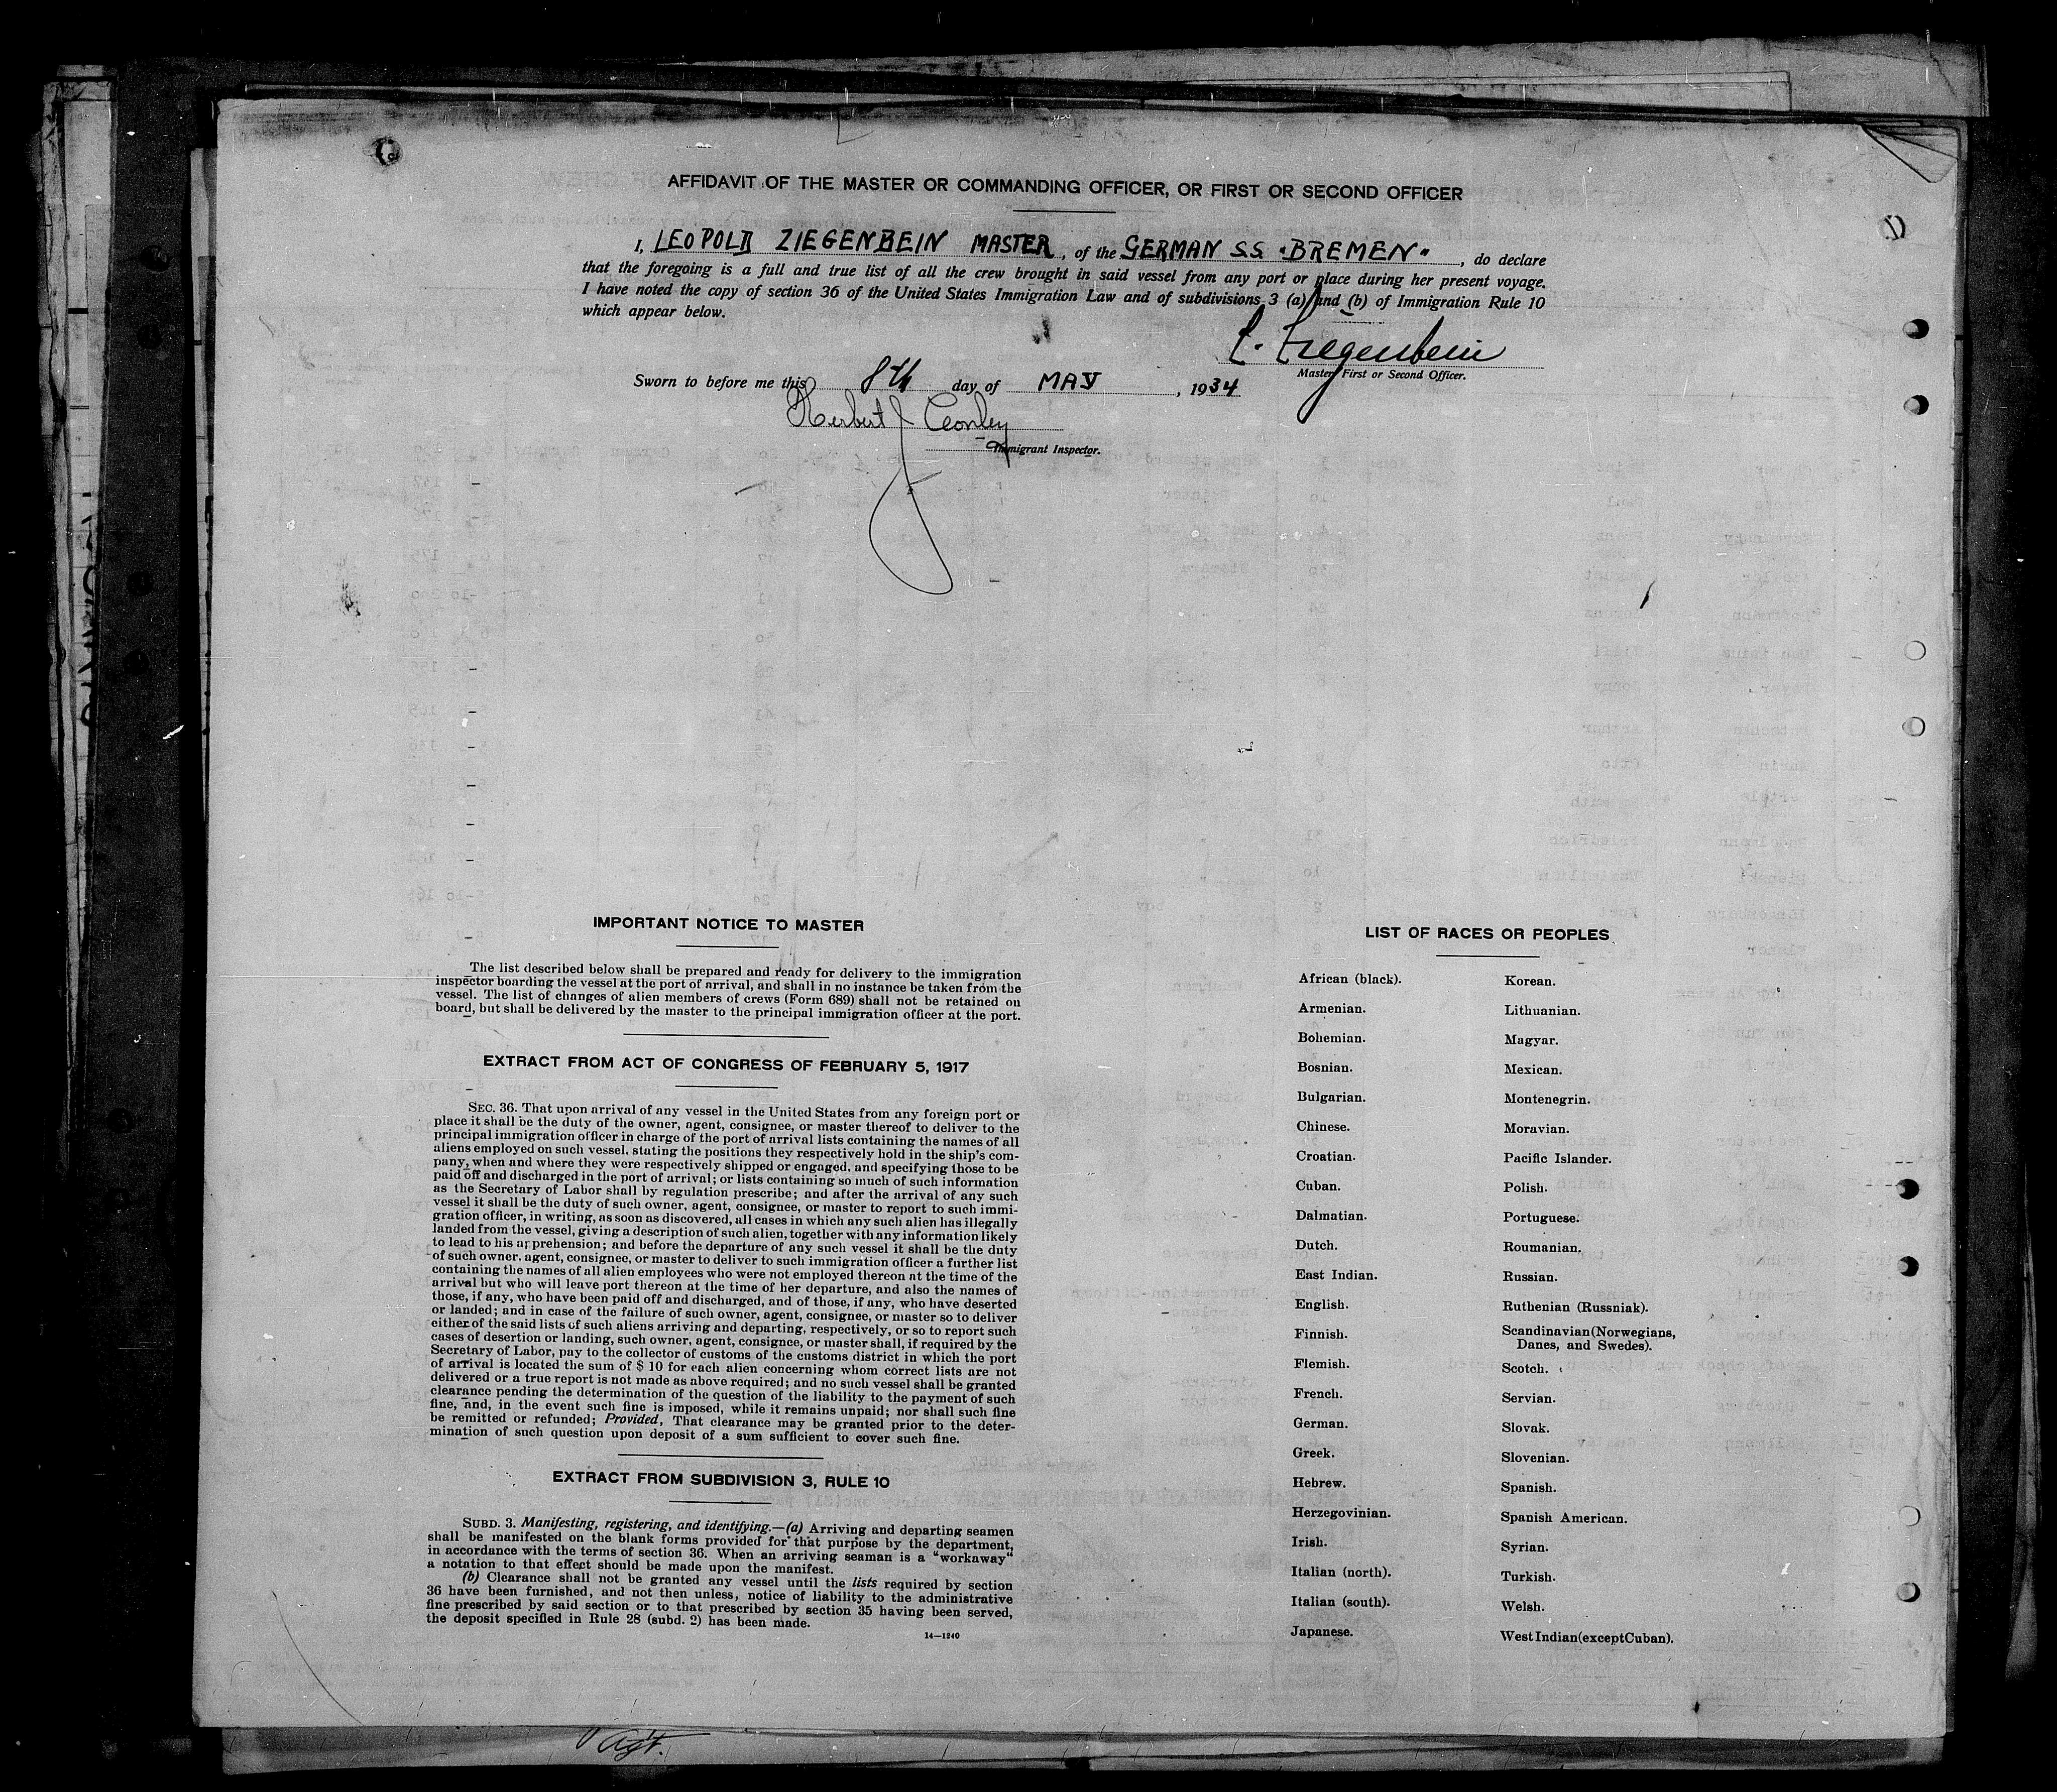 AFFIDAVIT OF THE MASTER OR COMMANDING OFFICER, OR FIRST OR SECOND OFFICER
I, LEOPOLD ZIEGENBEIN MASTER, of the GERMAN S.S. "BREMEN", do declare
that the foregoing is a full and true list of all the crew brought in said vessel from any port or place during her present voyage.
I have noted the copy of section 36 of the United States Immigration Law and of subdivisions 3 (a) and (b) of Immigration Rule 10
which appear below.
L. Ziegenbein
Master, First or Second Officer.
Sworn to before me this 8th day of MAY, 1934
Herbert J
Immigrant Inspector.
IMPORTANT NOTICE TO MASTER
The list described below shall be prepared and ready for delivery to the immigration
inspector boarding the vessel at the port of arrival, and shall in no instance be taken from the
vessel. The list of changes of alien members of crews (Form 689) shall not be retained on
board, but shall be delivered by the master to the principal immigration officer at the port.
EXTRACT FROM ACT OF CONGRESS OF FEBRUARY 5, 1917
SEC. 36. That upon arrival of any vessel in the United States from any foreign port or
place it shall be the duty of the owner, agent, consignee, or master thereof to deliver to the
principal immigration officer in charge of the port of arrival lists containing the names of all
aliens employed on such vessel, stating the positions they respectively hold in the ship's com-
pany, when and where they were respectively shipped or engaged, and specifying those to be
paid off and discharged in the port of arrival; or lists containing so much of such information
as the Secretary of Labor shall by regulation prescribe; and after the arrival of any such
vessel it shall be the duty of such owner, agent, consignee, or master to report to such immi-
gration officer, in writing, as soon as discovered, all cases in which any such alien has illegally
landed from the vessel, giving a description of such alien, together with any information likely
to lead to his apprehension; and before the departure of any such vessel it shall be the duty
of such owner, agent, consignee, or master to deliver to such immigration officer a further list
containing the names of all alien employees who were not employed thereon at the time of the
arrival but who will leave port thereon at the time of her departure, and also the names of
those, if any, who have been paid off and discharged, and of those, if any, who have deserted
or landed; and in case of the failure of such owner, agent, consignee, or master so to deliver
either of the said lists of such aliens arriving and departing, respectively, or so to report such
cases of desertion or landing, such owner, agent, consignee, or master shall, if required by the
Secretary of Labor, pay to the collector of customs of the customs district in which the port
of arrival is located the sum of $ 10 for each alien concerning whom correct lists are not
delivered or a true report is not made as above required; and no such vessel shall be granted
clearance pending the determination of the question of the liability to the payment of such
fine, and, in the event such fine is imposed, while it remains unpaid; nor shall such fine
be remitted or refunded; Provided, That clearance may be granted prior to the deter-
mination of such question upon deposit of a sum sufficient to cover such fine.
EXTRACT FROM SUBDIVISION 3, RULE 10
SUBD. 3. Manifesting, registering, and identifying.—(a) Arriving and departing seamen
shall be manifested on the blank forms provided for that purpose by the department,
in accordance with the terms of section 36. When an arriving seaman is a "workaway"
a notation to that effect should be made upon the manifest.
(b) Clearance shall not be granted any vessel until the lists required by section
36 have been furnished, and not then unless, notice of liability to the administrative
fine prescribed by said section or to that prescribed by section 35 having been served,
the deposit specified in Rule 28 (subd. 2) has been made.
14—1240
LIST OF RACES OR PEOPLES
African (black).
Armenian.
Bohemian.
Bosnian.
Bulgarian.
Chinese.
Croatian.
Cuban.
Dalmatian.
Dutch.
East Indian.
English.
Finnish.
Flemish.
French.
German.
Greek.
Hebrew.
Herzegovinian.
Irish.
Italian (north).
Italian (south).
Japanese.
Korean.
Lithuanian.
Magyar.
Mexican.
Montenegrin.
Moravian.
Pacific Islander.
Polish.
Portuguese.
Roumanian.
Russian.
Ruthenian (Russniak).
Scandinavian (Norwegians,
Danes, and Swedes).
Scotch.
Servian.
Slovak.
Slovenian.
Spanish.
Spanish American.
Syrian.
Turkish.
Welsh.
West Indian (except Cuban).